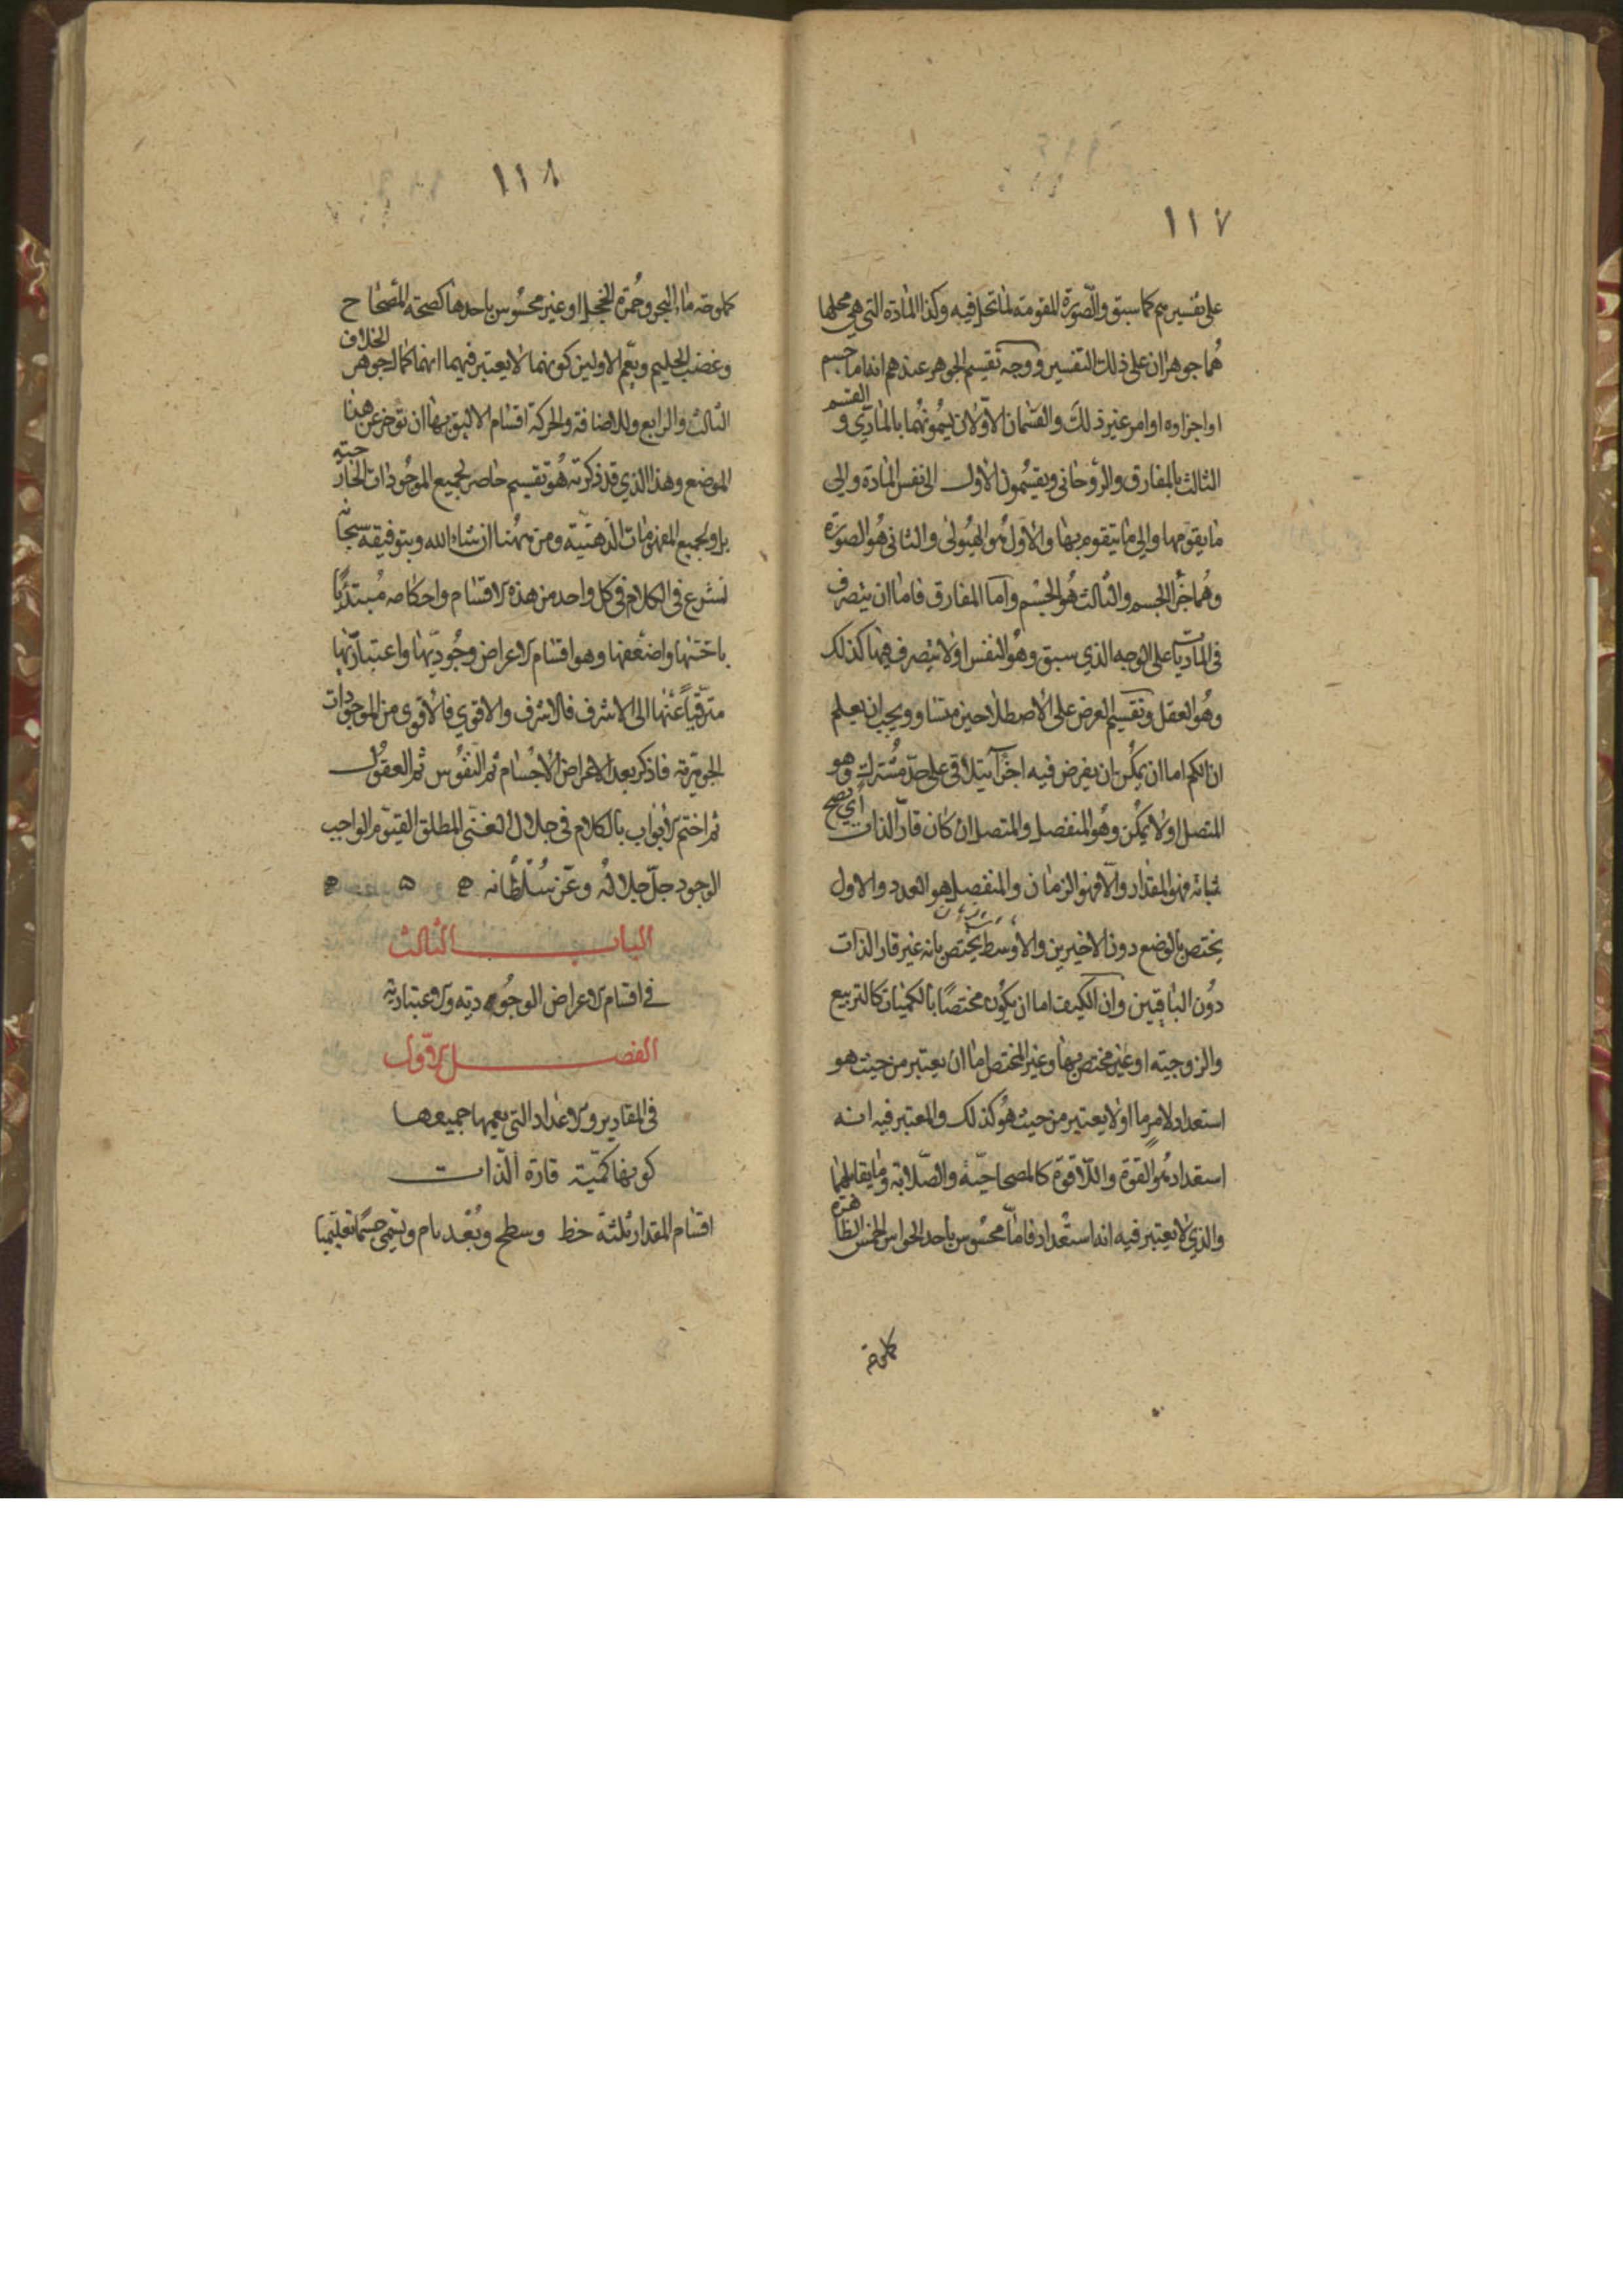 ١١٧
على تفسيرهم كما سبق والصّورة المقومة لما تحل فيه وكذا المادة التي هي محلها
هُما جوهران على ذلك التفسير ووجه تقسيم الجوهر عندهم انه اما جسم
او اجزاوه او امر غير ذلك والقسمان الاوّلان يسمونهما بالمادّي و القسم
الثالث بالمفارق والرّوحانى ويقسمون الاول الى نفس المادة والى
ما يقوّمها والى ما يتقوم بها والاوّل هُو الهيُولى والثانى هُو الصورة
وهُما جزآ الجسم والثالث هُو الجسْم وامّا المفارق فاما ان يتصرف
فى الماديّات على الوجه الذي سبق وهُو النفس اولا يتصرف فيها كذلك
وهُو العقل وتقسيم العرض على الاصطلاحين متساو ويجب ان يعلم
ان الكم اما ان يمكن ان يفرض فيه اجزآ يتلاقى على حدّ مُشترك وهو
المتصل او لا يمكن وهُو المنفصل والمتصل ان كان قارّ الذات أي يصح
ثباته فهو المقدار والّا فهو الزمان والمنفصل هو العدد والاول
يختص بالوضع دون الاخيرين والاوسَط يختص بانه غير قار الذات
دُون الباقيين وان الكيف اما ان يكوُن مختصًا بالكميات كالتربيع
والزوجيّه او غير مختص بها وغير المختص اما ان يعتبر من حيث هو
استعداد لامرٍ ما او لا يعتبر من حيث هُو كذلك والمعتبر فيه انه
استعداد هُو القوة واللّا قوة كالمصحاحيّة والصّلابة وما يقابلهما
والذي لا يعتبر فيه انه استعْداد فامّا محسُوس بأحد الحواس الخمس الظاهرة
كملوحة
١١٨
كملوحة ماء البحر وحُمرة الخجل او غير محسُوس باحدها كصحة المصحاح
وغضب الحليم ويعّم الاولين كونهما لا يعتبر فيهما انهما كمال جوهر الخلاف
الثالث والرابع وللاضافة والحركة اقسَام الاليق بها ان تؤخر عن هذا
الموضع وهذا الذي قد ذكرته هُو تقسيم حاصر لجميع الموجُودات الخارجيّة
بل ولجميع المفهومات الذهنيّة ومن ههُنا ان شاء الله وبتوفيقه سبحانه
نشرع فى الكلام فى كل واحد من هذه الاقسَام واحكامه مُبتدئًا
باخسّها واضعفها وهو اقسَام الاعراض وجُوديّها واعتباريّها
مترقيّاً عنها الى الاشرف فالاشرف والاقوي فالاقوى من الموجودات
الجوهريّة فاذكر بعد الاعراض الاجسَام ثم النفُوس ثم العقُول
ثم اختم الابْواب بالكلام فى جلال الغنّى المطلق القيّوم الواجب
الوجود جلّ جلالهُ وعّز سُلطُانه ه ه ه
البابــ الثالث
فى اقسَام الاعراض الوجُودية والاعتبارية
الفصــل الاوّل
فى المقادير والاعداد التى يعمها جميعها
كونها كميّة قارّة الّذات
اقسَام المقدار ثلثة خط وسطح وبُعْد تام ويسمى جسمًا تعليميا